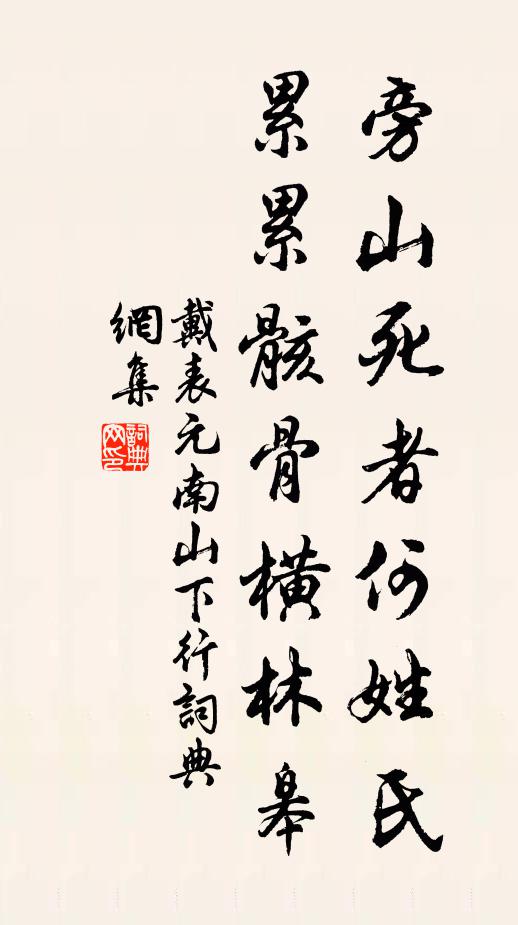 旁山死者何姓氏
累累骸骨橫林皋
戴表元南山下行詞典
網集
詞典
网印